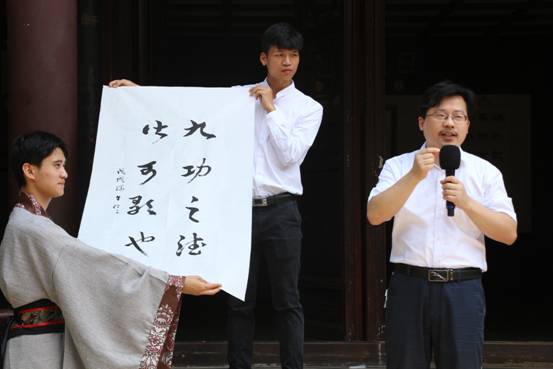 九功之德
皆可歌也